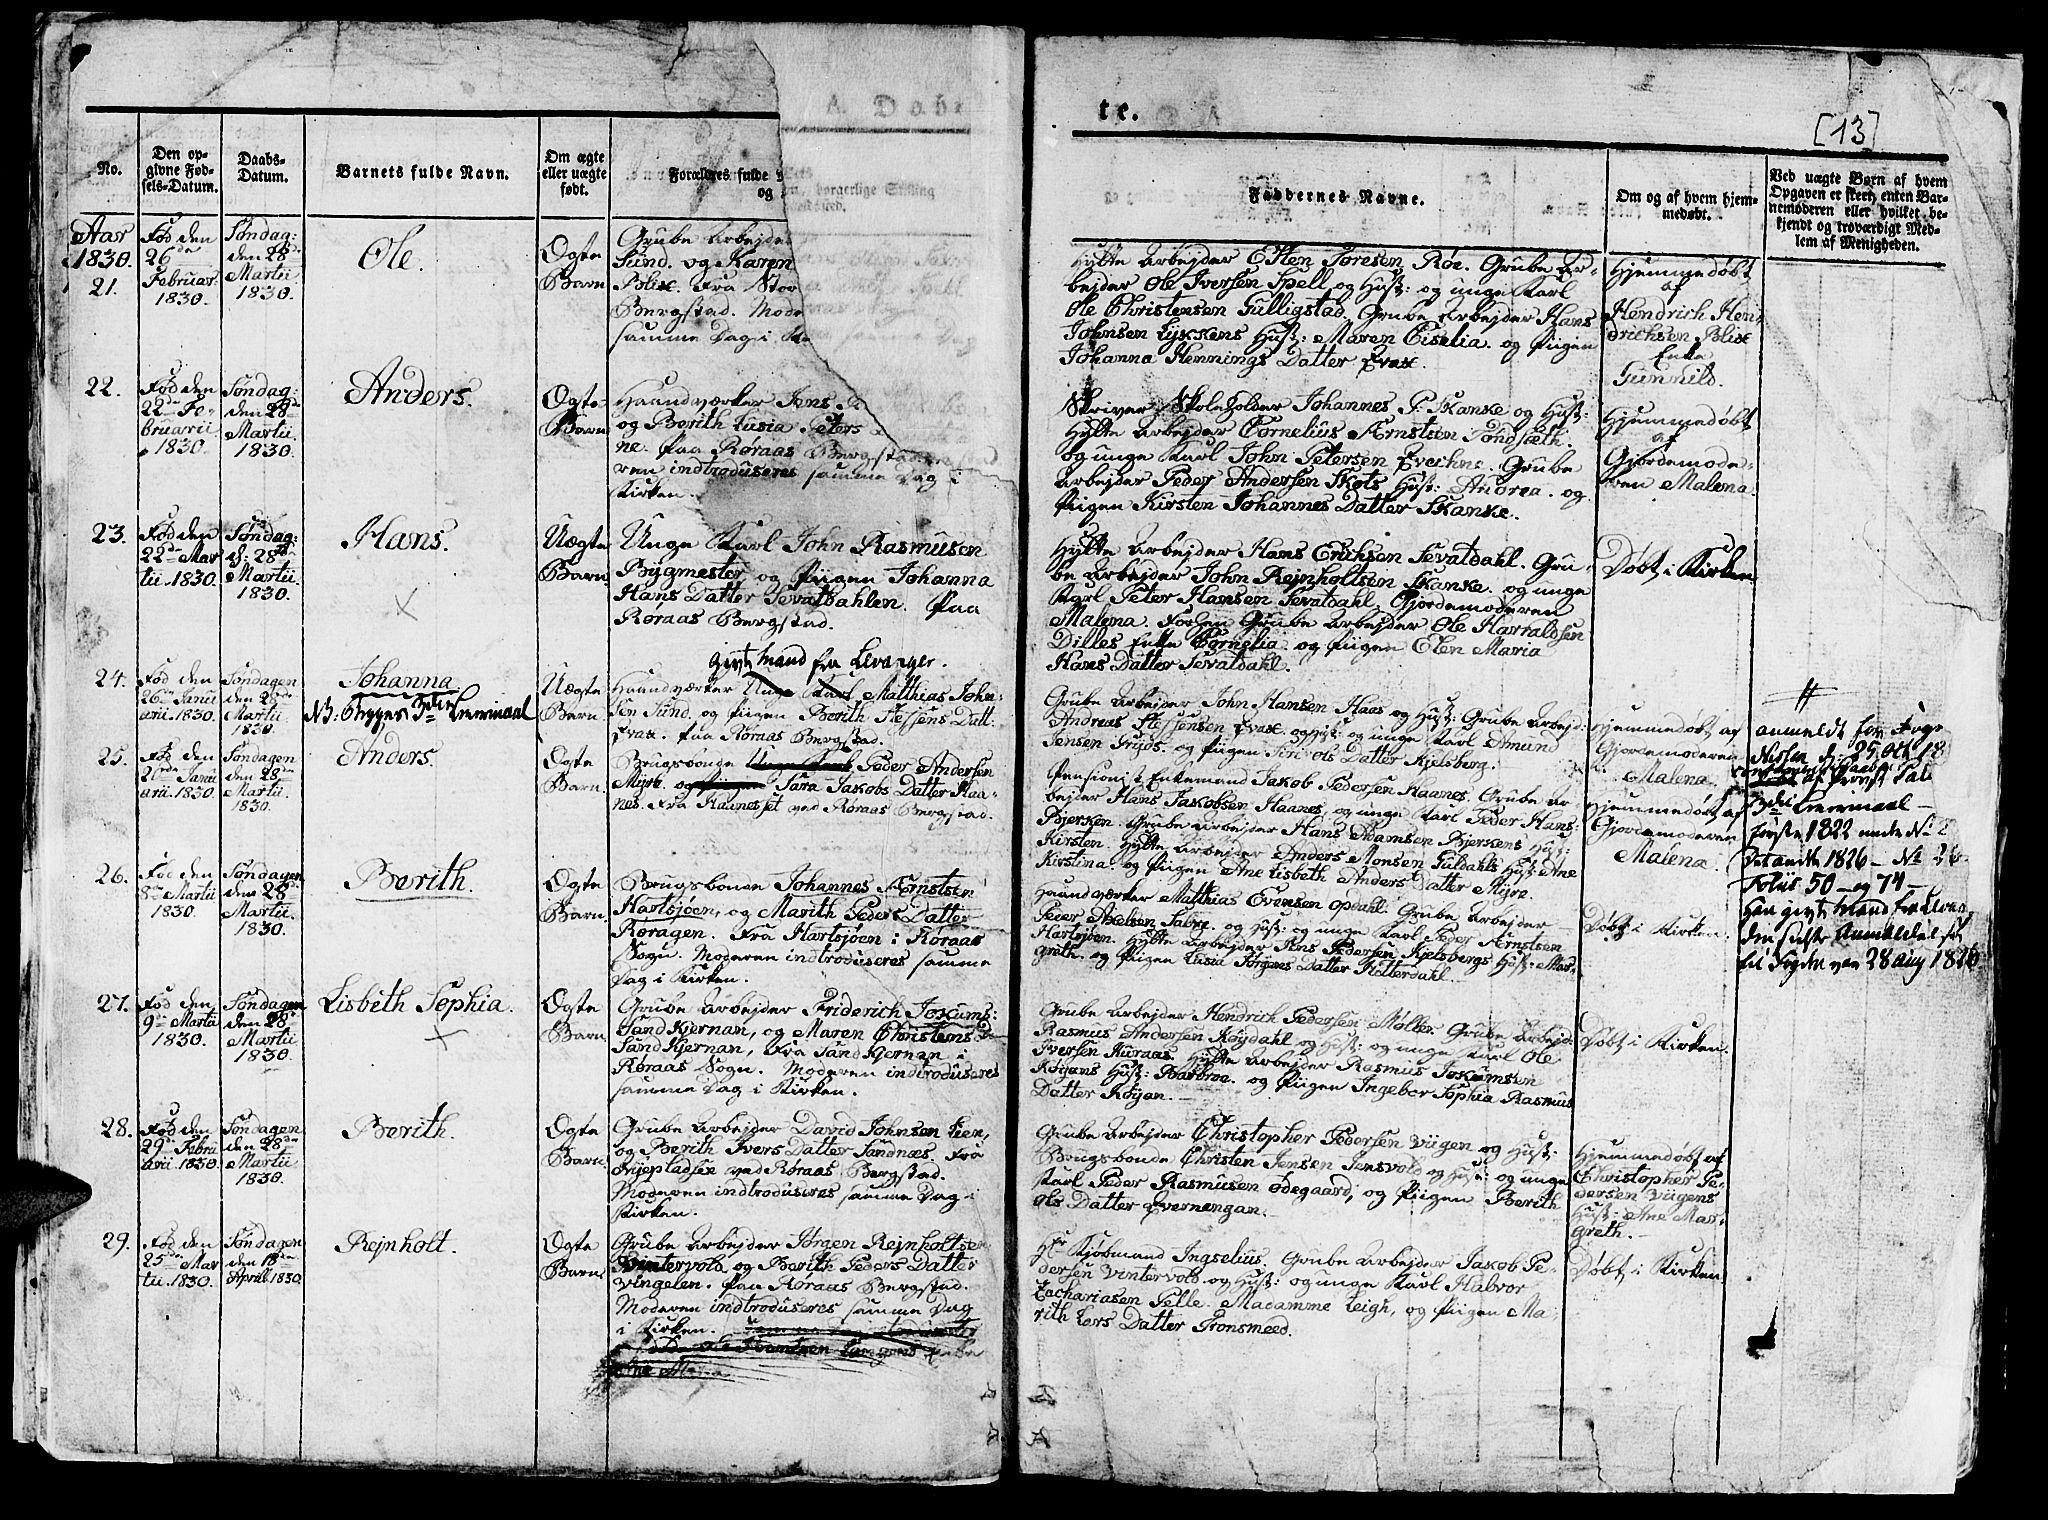 A. Døbte.
[13]
No.
Den opgivne Fødsels-Datum.
Daabs-Datum.
Barnets fulde Navn.
Om ægte eller uægte født.
Forældres fulde
og
Faddernes Navne.
Om og af hvem hjemmedøbt.
Ved uægte Børn af hvem
Opgaven er skeet, enten Barnemoderen eller hvilket bekjendt og troværdigt Medlem af Menigheden.
Aar
1830.
21.
Fød den
26de
Februar
1830.
Søndag:
den 28de
Martii
1830.
Ole.
Ægte
Barn
Grube Arbejder
Sund. og Karen
Polix. Fra Stor
Bergstad. Mode
samme Dag i
Hytte Arbejder Esten Toresen Røe. Grube Ar-
bejder Ole Iversen Spell og Hust: og unge Karl
Ole Christensen Gulligstad. Grube Arbejder Hans
Johnsen Lykkens Hust: Maren Eiselia. og Piigen
Johanna Hennings Datter Evax.
Hjemmedøbt
af
Hendrich Hen
drichsen Polix
Enke
Gunhild.
22.
Fød den
22de Fe-
bruarii
1830.
Søndag:
den 28de
Martii
1830.
Anders.
Ægte
Barn
Haandværker Jens
og Berith Lusia Peters
ne. Paa Røraas Bergstad
ren indtroduseres samme Dag i
Kirken.
Skriver, Skoleholder Johannes P. Skanke og Hust:
Hytte Arbejder Cornelius Ærnstsen Tondsæth.
og unge Karl John Petersen Evehne. Grube
Arbejder Peder Andersen Skots Hust: Andrea. og
Piigen Kirsten Johannes Datter Skanke.
Hjemmedøbt
af
Gjordemode-
ren Malena.
23.
Fød den
22de Mar
tii. 1830.
Søndag:
d: 28de
Martii
1830.
Hans.
Uægte
Barn.
Unge Karl John Rasmusen
Bygmester og Piigen Johanna
Hans Datter Sevatdahlen. Paa
Røraas Bergstad.
Hytte Arbejder Hans Erichsen Sevatdahl. Gru-
be Arbejder John Rejnholtsen Skanke. og unge
Karl Peter Hansen Sevatdahl. Gjordemoderen
Malena. Forgen Grube Arbejder Ole Harraldsen
Dilles Enke Cornelia. og Piigen Elen Maria
Hans Datter Sevatdahl.
Døbt i Kirken
24.
Fød den
26de Janu
arii. 1830.
Søndagen
den 28de
Martii
1830.
Johanna
NB. 3die Leiermaal
Uægte
Barn.
givt Mand fra Levanger.
Haandværker Unge Karl Matthias John-
sen Sund. og Piigen Berith Steffens Datt-
Evax. Paa Røraas Bergstad.
Grube Arbejder John Hansen Haas og Hust: Grube Arbejd:
Andreas Steffensen Evax og Hust: og unge Karl Amund
Jensen Fryds. og Piigen Siri Ols Datter Kjelsberg.
Hjemmedøbt af
Gjordemoderen
Malena.
anmeldt for Foge
Nissen dj 25 Oct 18
3die Leiermaal -
første 1822 under No 2
Det andet 1826 - No 26
Foliis 50 - og 74 -
Han givt Mand fra Levan
den sidste Anmeldelse
til Fogden var 28 Aug 1826
25.
Fød den
20de Janu
arii. 1830.
Søndagen
den 28de
Martii
1830.
Anders.
Ægte
Barn.
Brugsbonde Unge Karl Peder Andersen
Myre. og Piigen Sara Jakobs Datter Haa-
nes. Fra Haaneset ved Røraas Bergstad.
Pensionist Enkemand Jakob Pedersen Haanes. Grube Ar
bejder Hans Jakobsen Haanes, og unge Karl Peder Hans:
Bjerken. Grube Arbejder Hans Adamsen Bjerkens Hust:
Kirsten. Hytte Arbejder Anders Monsen Guldahls Hust: Ane
Kirstina. og Piigen Ane Lisbeth Anders Datter Myre.
Hjemmedøbt af
Gjordemoderen
Malena.
26.
Fød den
8de Martii
1830.
Søndagen
den 28de
Martii
1830.
Berith.
Ægte
Barn.
Brugsbonde Johannes Ærnstsen
Hartsjøen, og Marith Peders Datter
Røragen. Fra Hartsjøen i Røraas
Sogn. Moderen indtroduseres samme
Dag i Kirken.
Haandværker Matthias Evensen Opdahl. Grube Arbejder
Peder Axelsen Sabre. og Hust: og unge Karl Peder Ærnstsen
Hartsjøen. Hytte Arbejder Jens Pedersen Kjelsbergs Hust: Mar-
greth. og Piigen Lusia Jørgens Datter Hitterdahl.
Døbt i Kirken.
27.
Fød den
9de Martii
1830.
Søndagen
den 28de
Martii
1830.
Lisbeth Sophia.
Ægte
Barn.
Grube Arbejder Friderich Jokums:
Sand Kjernan, og Maren Christens D
Sand Kjernan, Fra Sand Kjernan i
Røraas Sogn. Moderen indtroduseres
samme Dag i Kirken.
Grube Arbejder Hendrich Pedersen Møller. Grube Arbejd:
Rasmus Andersen Køydahl og Hust: og unge Karl Ole
Iversen Huraas. Hytte Arbejder Rasmus Jokumsen
Røjans Hust: Barbroe. og Piigen Ingeber Sophia Rasmus
Datter Røjan.
Døbt i Kirken.
28.
Fød den
29de Febru
arii. 1830.
Søndagen
den 28de
Martii
1830.
Berith.
Ægte
Barn.
Grube Arbejder David Johnsen Lien,
og Berith Ivers Datter Sandnæs. Fra
Nyepladsen ved Røraas Bergstad.
Moderen indtroduseres samme Dag i
Kirken.
Grube Arbejder Christopher Pedersen Viigen og Hust:
Brugsbonde Christen Jensen Jensvold og Hust: og unge
Karl Peder Rasmusen Ødegaard, og Piigen Berith
Ols Datter Evernengan.
Hjemmedøbt af
Christopher Pe-
dersen Viigens
Hust: Ane Mar-
greth.
29.
Fød den
25de Mar
tii. 1830.
Søndagen
den 18de
April 1830.
Rejnholt.
Ægte
Barn.
Grube Arbejder Jørgen Rejnholtsen
Vintervold og Berith Peders Datter
Vingelen. Paa Røraas Bergstad.
Moderen indtroduseres samme Dag
i Kirken.
Hr Kjøbmand Ingselius. Grube Arbejder Jakob Pe-
dersen Vintervold. og Hust: og unge Karl Halvor
Zachariasen Selle. Madamme Leigh, og Piigen Ma-
rith Lars Datter Tronsmeed.
Døbt i Kirken.